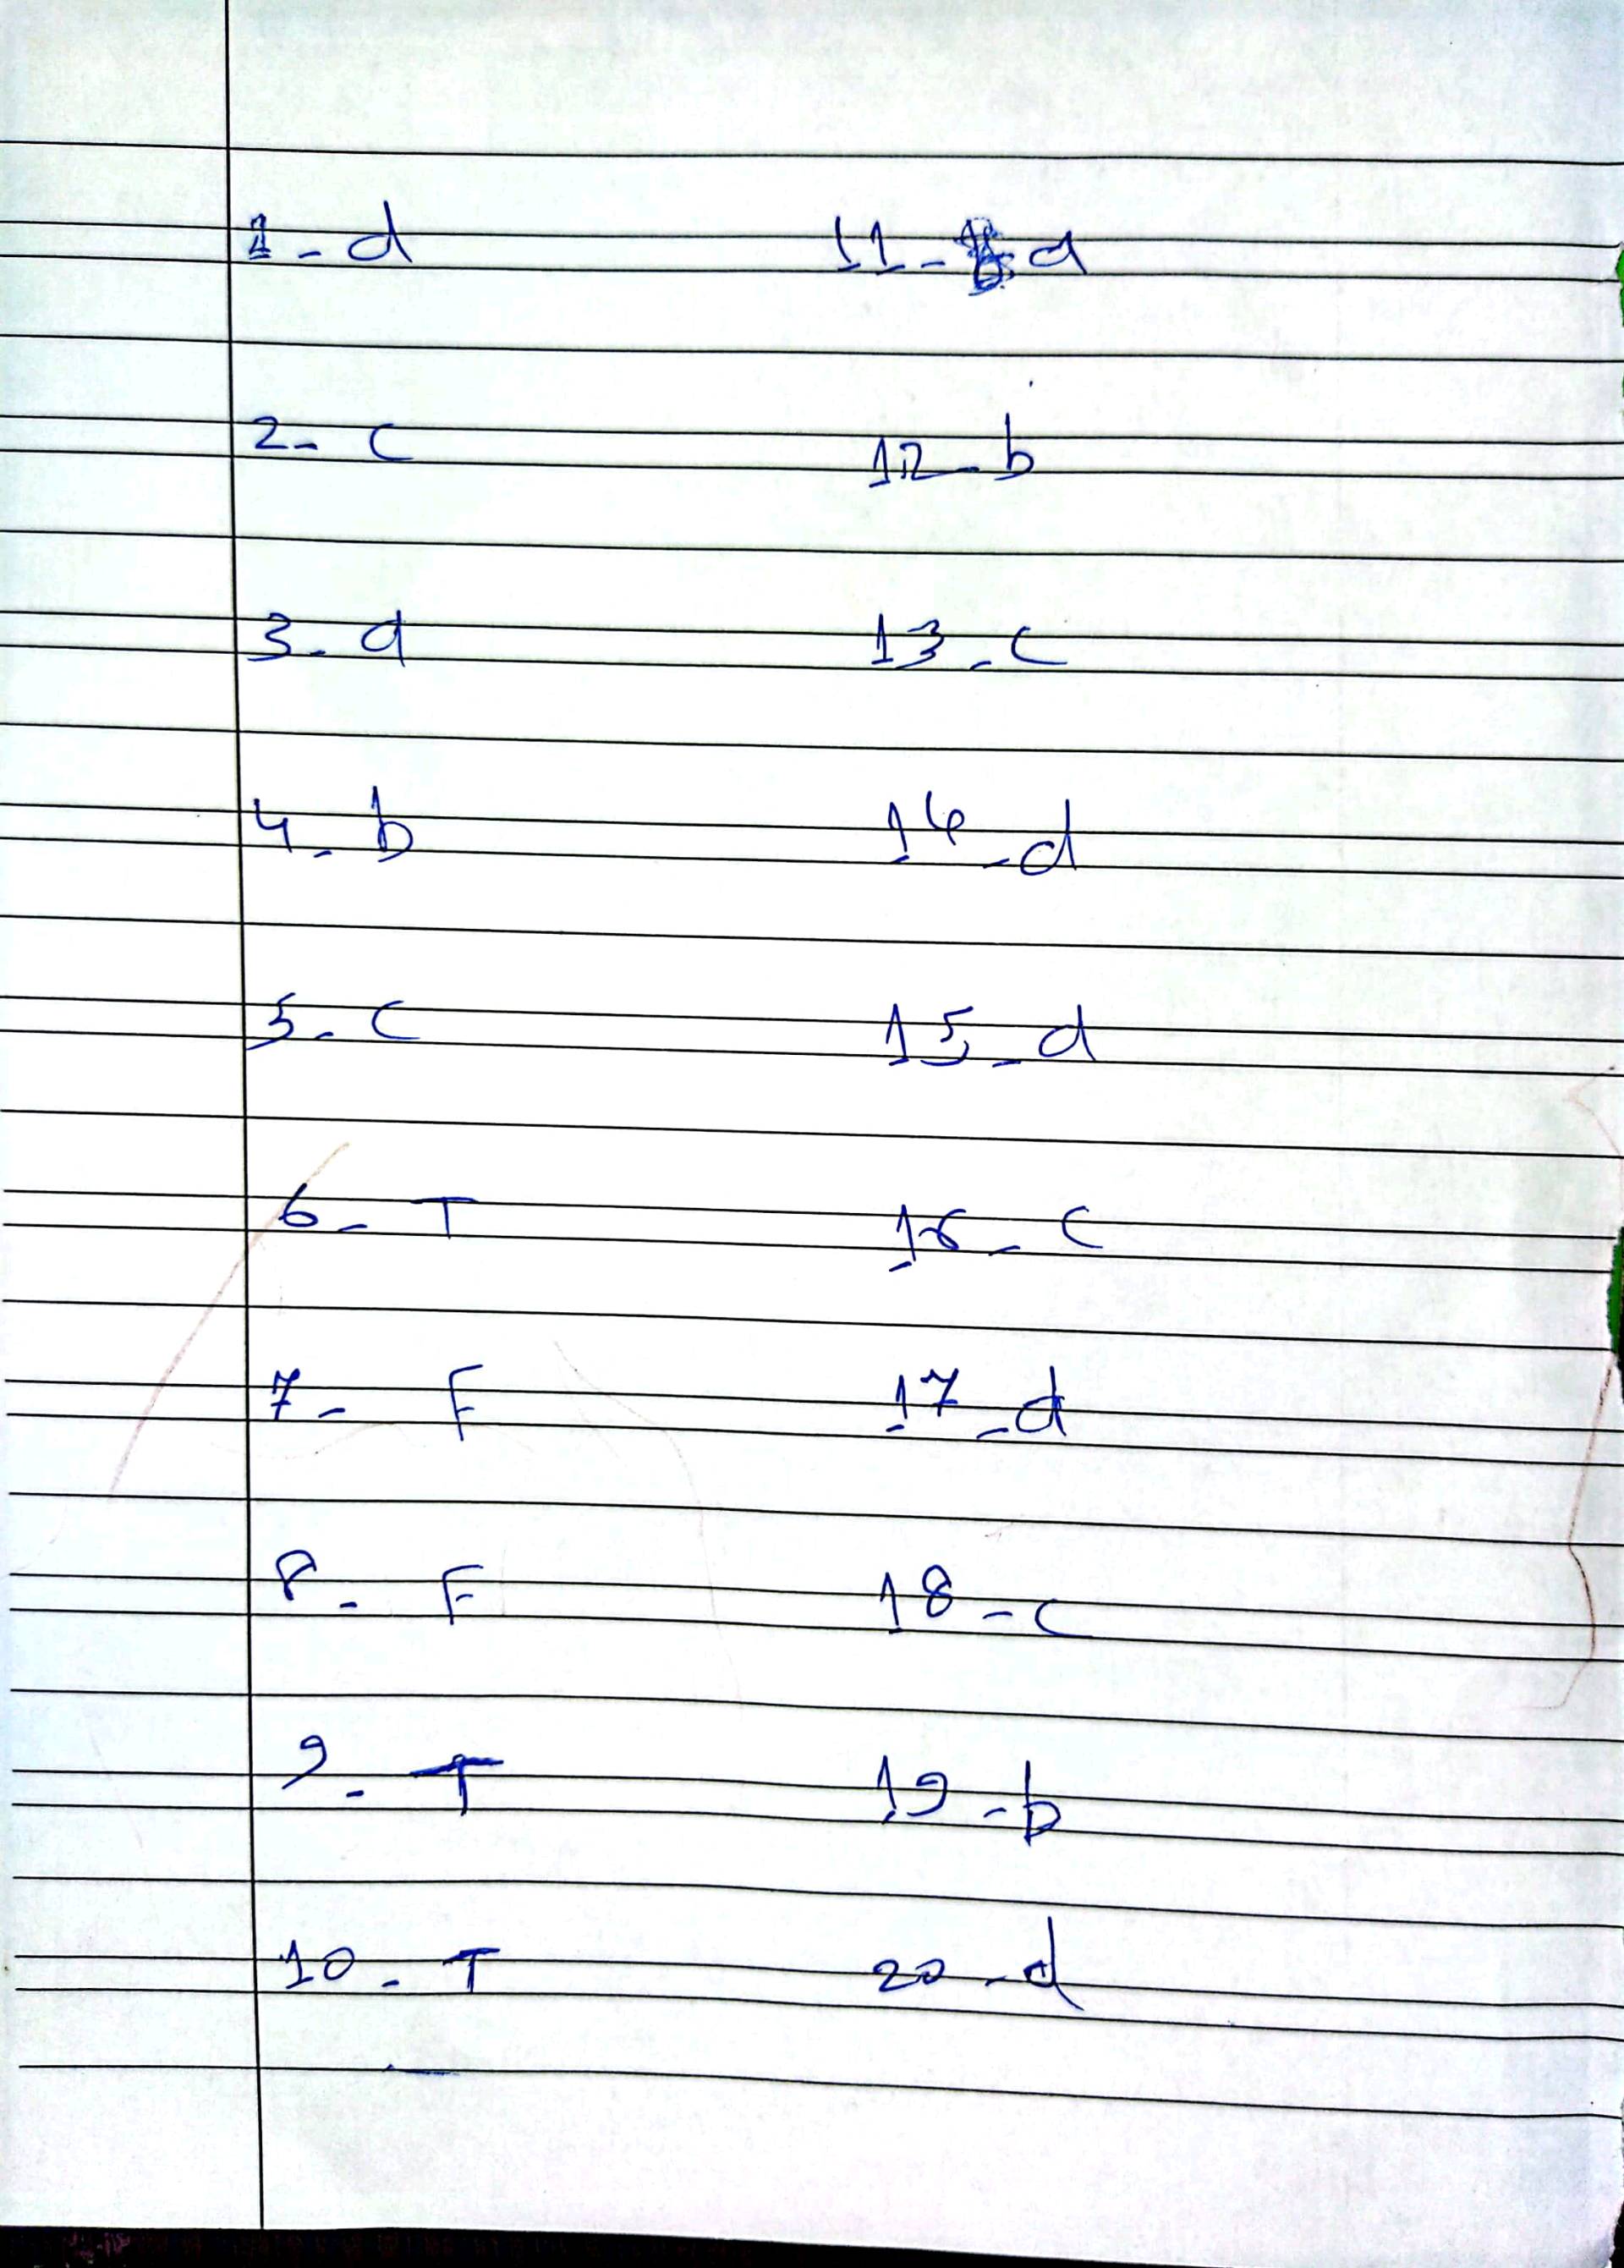 1- d
2- c
3- a
4- b
5- c
6- T
7- F
8- F
9- T
10- T
11- a
12- b
13- c
14- d
15- d
16- c
17- d
18- c
19- b
20- d